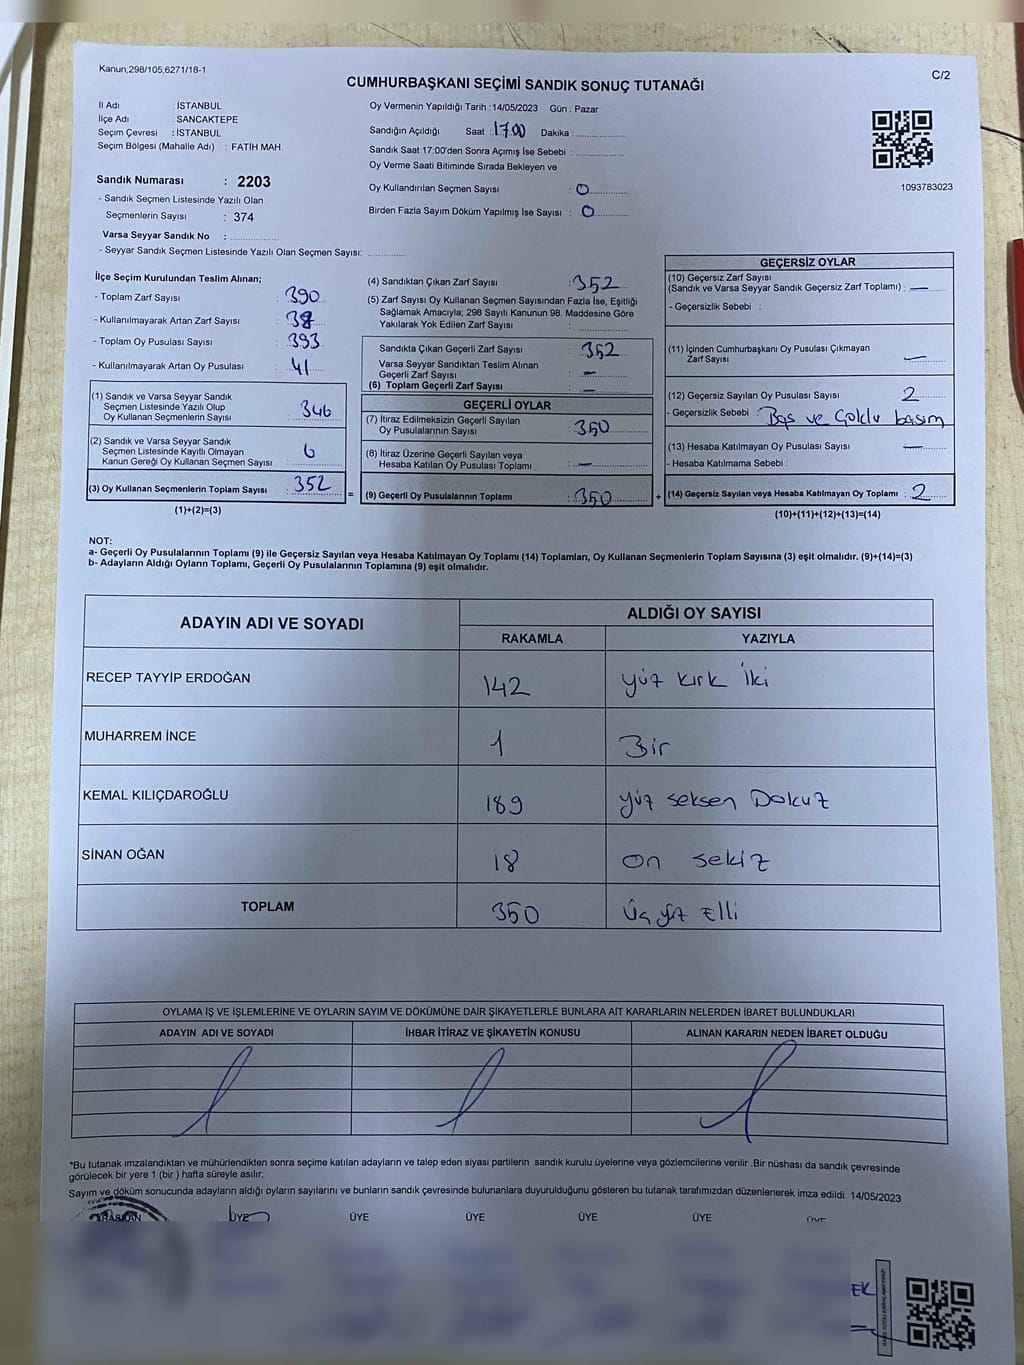 Kanun,298/105,6271/18-1
C/2
CUMHURBAŞKANI SEÇİMİ SANDIK SONUÇ TUTANAĞI
İl Adı : İSTANBUL
İlçe Adı : SANCAKTEPE
Seçim Çevresi : İSTANBUL
Seçim Bölgesi (Mahalle Adı) : FATİH MAH.
Sandık Numarası : 2203
- Sandık Seçmen Listesinde Yazılı Olan
Seçmenlerin Sayısı : 374
Varsa Seyyar Sandık No :
- Seyyar Sandık Seçmen Listesinde Yazılı Olan Seçmen Sayısı:
Oy Vermenin Yapıldığı Tarih :14/05/2023 Gün : Pazar
Sandığın Açıldığı Saat : 17.00 Dakika :
Sandık Saat 17:00'den Sonra Açımış İse Sebebi :
Oy Verme Saati Bitiminde Sırada Bekleyen ve
Oy Kullandırılan Seçmen Sayısı : 0
Birden Fazla Sayım Döküm Yapılmış İse Sayısı : 0
1093783023
İlçe Seçim Kurulundan Teslim Alınan;
- Toplam Zarf Sayısı : 390
- Kullanılmayarak Artan Zarf Sayısı : 38
- Toplam Oy Pusulası Sayısı : 393
- Kullanılmayarak Artan Oy Pusulası : 41
(1) Sandık ve Varsa Seyyar Sandık
Seçmen Listesinde Yazılı Olup
Oy Kullanan Seçmenlerin Sayısı : 346
(2) Sandık ve Varsa Seyyar Sandık
Seçmen Listesinde Kayıtlı Olmayan
Kanun Gereği Oy Kullanan Seçmen Sayısı : 6
(3) Oy Kullanan Seçmenlerin Toplam Sayısı : 352
(1)+(2)=(3)
(4) Sandıktan Çıkan Zarf Sayısı : 352
(5) Zarf Sayısı Oy Kullanan Seçmen Sayısından Fazla İse, Eşitliği
Sağlamak Amacıyla; 298 Sayılı Kanunun 98. Maddesine Göre
Yakılarak Yok Edilen Zarf Sayısı :
Sandıkta Çıkan Geçerli Zarf Sayısı : 352
Varsa Seyyar Sandıktan Teslim Alınan
Geçerli Zarf Sayısı : —
(6) Toplam Geçerli Zarf Sayısı : —
GEÇERLİ OYLAR
(7) İtiraz Edilmeksizin Geçerli Sayılan
Oy Pusulalarının Sayısı : 350
(8) İtiraz Üzerine Geçerli Sayılan veya
Hesaba Katılan Oy Pusulası Toplamı : —
= (9) Geçerli Oy Pusulalarının Toplamı : 350 +
GEÇERSİZ OYLAR
(10) Geçersiz Zarf Sayısı
(Sandık ve Varsa Seyyar Sandık Geçersiz Zarf Toplamı) : —
- Geçersizlik Sebebi :
(11) İçinden Cumhurbaşkanı Oy Pusulası Çıkmayan
Zarf Sayısı : —
(12) Geçersiz Sayılan Oy Pusulası Sayısı : 2
- Geçersizlik Sebebi : Boş ve Çoklu basım
(13) Hesaba Katılmayan Oy Pusulası Sayısı : —
- Hesaba Katılmama Sebebi :
(14) Geçersiz Sayılan veya Hesaba Katılmayan Oy Toplamı : 2
(10)+(11)+(12)+(13)=(14)
NOT:
a- Geçerli Oy Pusulalarının Toplamı (9) ile Geçersiz Sayılan veya Hesaba Katılmayan Oy Toplamı (14) Toplamları, Oy Kullanan Seçmenlerin Toplam Sayısına (3) eşit olmalıdır. (9)+(14)=(3)
b- Adayların Aldığı Oyların Toplamı, Geçerli Oy Pusulalarının Toplamına (9) eşit olmalıdır.
ADAYIN ADI VE SOYADI
ALDIĞI OY SAYISI
RAKAMLA YAZIYLA
RECEP TAYYİP ERDOĞAN 142 yüz kırk iki
MUHARREM İNCE 1 Bir
KEMAL KILIÇDAROĞLU 189 yüz seksen Dokuz
SİNAN OĞAN 18 On sekiz
TOPLAM 350 Üç yüz Elli
OYLAMA İŞ VE İŞLEMLERİNE VE OYLARIN SAYIM VE DÖKÜMÜNE DAİR ŞİKAYETLERLE BUNLARA AİT KARARLARIN NELERDEN İBARET BULUNDUKLARI
ADAYIN ADI VE SOYADI İHBAR İTİRAZ VE ŞİKAYETİN KONUSU ALINAN KARARIN NEDEN İBARET OLDUĞU
*Bu tutanak imzalandıktan ve mühürlendikten sonra seçime katılan adayların ve talep eden siyasi partilerin sandık kurulu üyelerine veya gözlemcilerine verilir .Bir nüshası da sandık çevresinde
görülecek bir yere 1 (bir ) hafta süreyle asılır.
Sayım ve döküm sonucunda adayların aldığı oyların sayılarını ve bunların sandık çevresinde bulunanlara duyurulduğunu gösteren bu tutanak tarafımızdan düzenlenerek imza edildi. 14/05/2023
BAŞKAN ÜYE ÜYE ÜYE ÜYE ÜYE ÜYE
EK